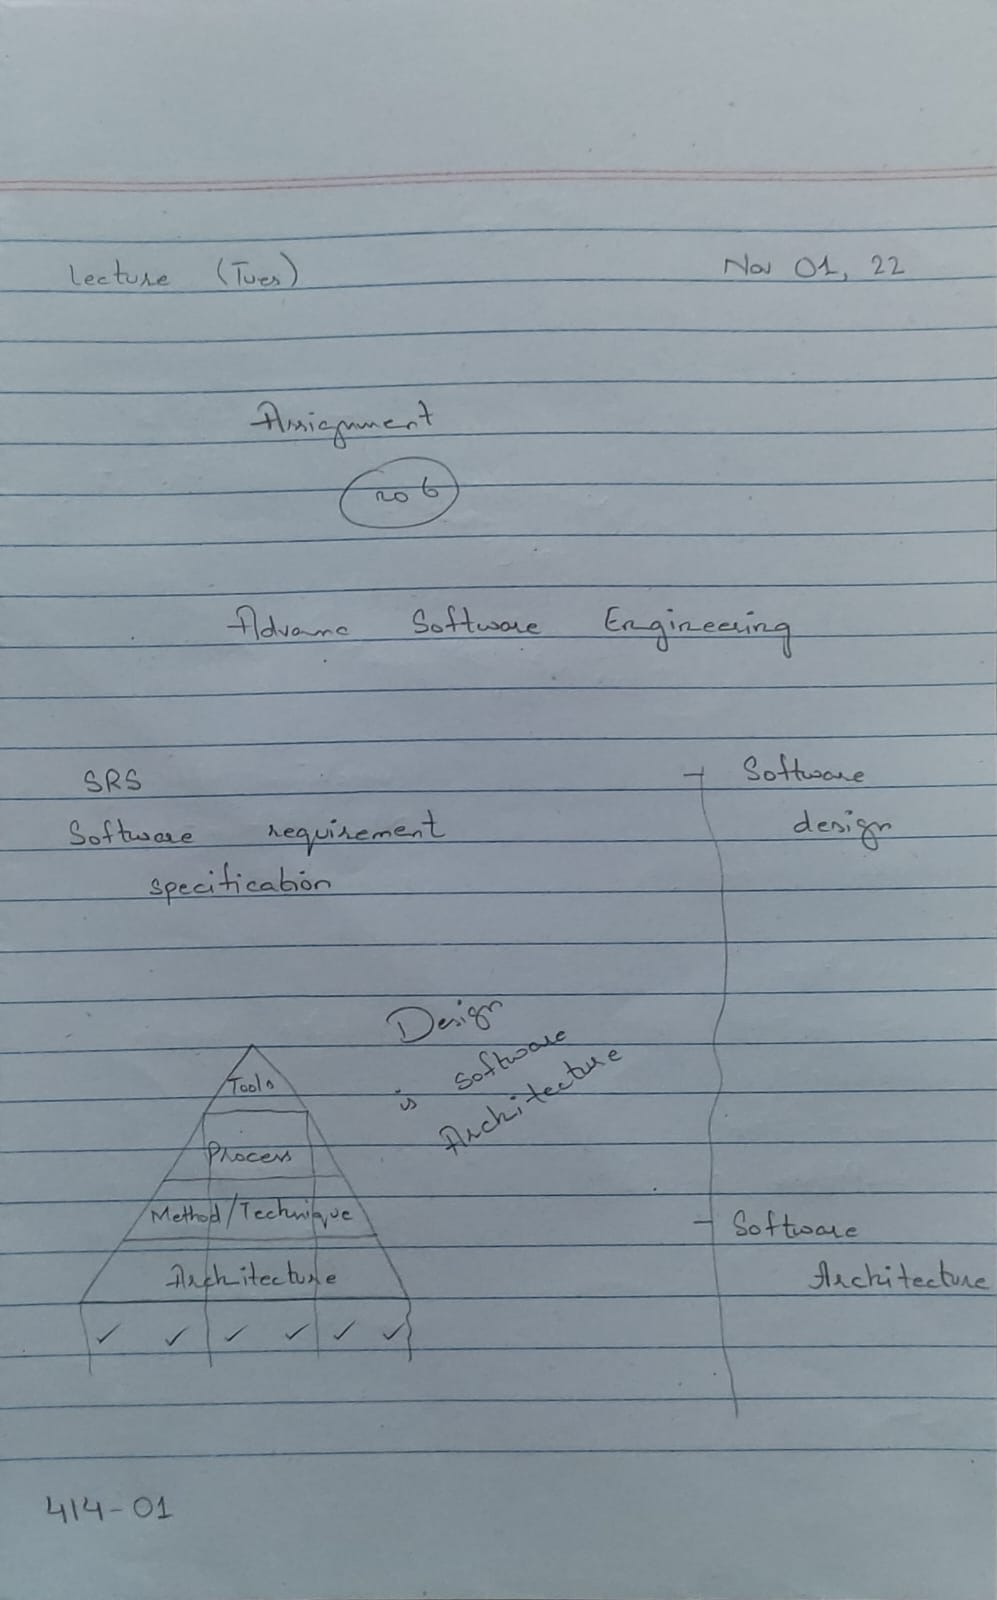 Lecture (Tues)
Nov 01, 22
Assignment
no 6
Advanc Software Engineering
SRS
Software requirement
specification
Software
design
Design
is software
Architecture
Tools
Process
Method/Technique
Architecture
Software
Architecture
414-01